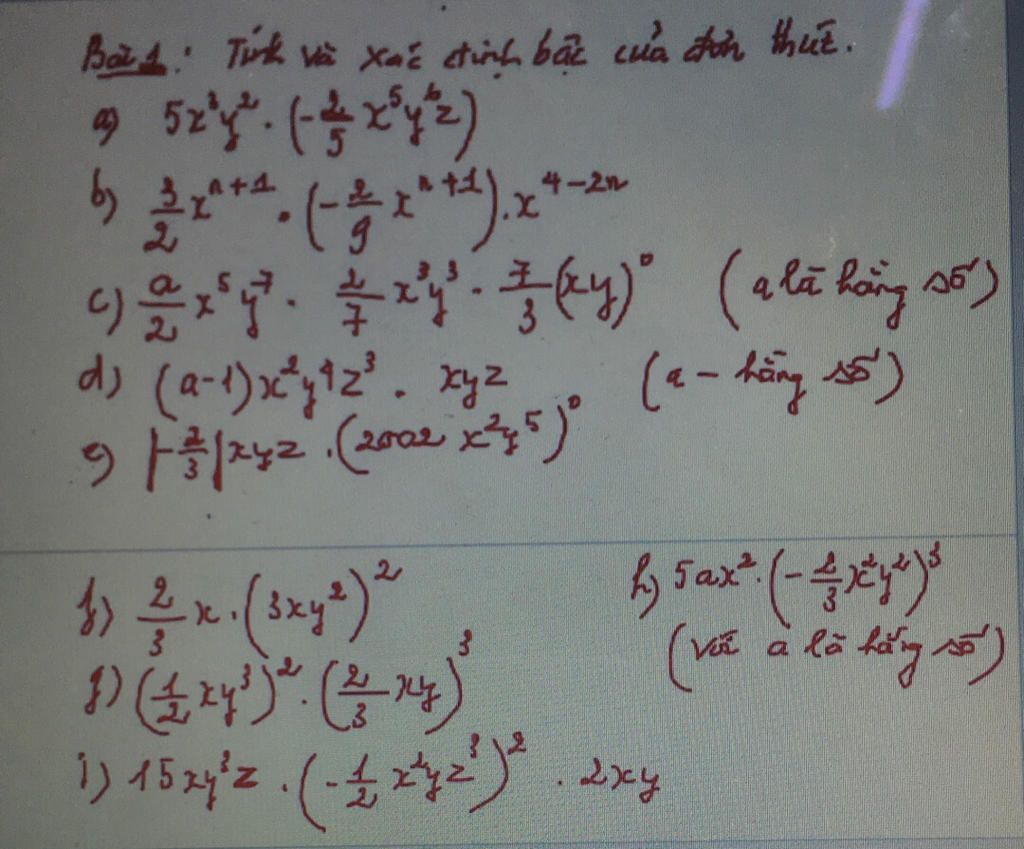 Bài 1: Tính và xác định bậc của đơn thức.
a) 5x³y² · (-2/5 x⁵y⁶z)
b) 3/2 xⁿ⁺¹ · (-2/9 xⁿ⁺¹) . x⁴⁻²ⁿ
c) a/2 x⁵y⁷ · 2/7 x³y³ · 7/3 (xy)⁰ (a là hằng số)
d) (a-1)x²y⁴z³ . xyz (a - hằng số)
e) |-2/3|xyz . (2002 x²y⁵)⁰
f) 2/3 x · (3xy²)²
h) 5ax² · (-2/3 x²y²)³
(với a là hằng số)
g) (1/2 xy³)² · (2/3 xy)³
i) 15xy³z . (-1/2 x²yz³)² . 2xy